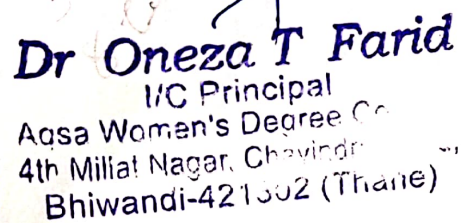 Dr Oneza T Farid
I/C Principal
Aqsa Women's Degree
4th Millat Nagar,
Bhiwandi-421302 (Thane)